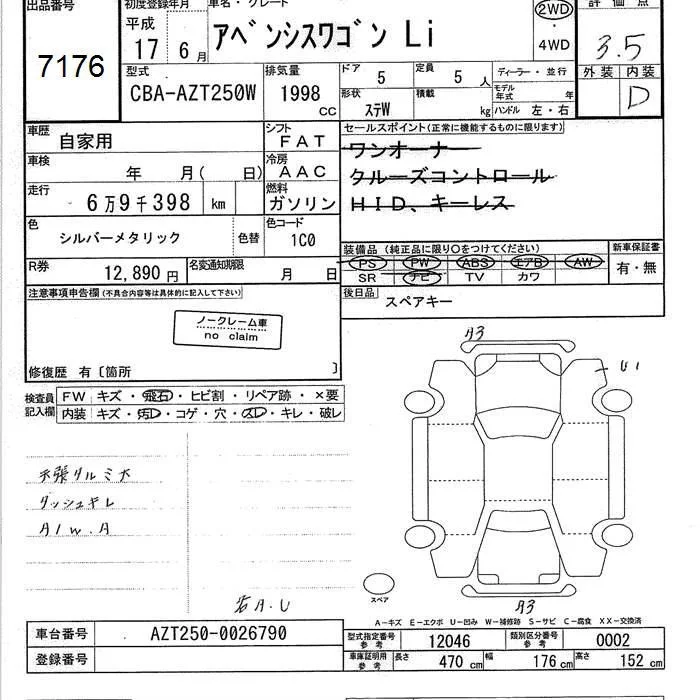 出品番号 初度登録年月 車名・グレード 2WD 評価点
7176 平成 17 6 月 アベンシスワゴン Li 4WD 3.5
型式 排気量 ドア 5 定員 5 人 ディーラー・並行 外装 内装
CBA-AZT250W 1998 CC 形状 ステW 積載 kg モデル年式 年 ハンドル 左・右 D
車歴 自家用 シフト FAT セールスポイント(正常に機能するものに限ります)
車検 年 月( 日) 冷房 AAC ワンオーナー
走行 6万9千398 km 燃料 ガソリン クルーズコントロール
HID、キーレス
色 シルバーメタリック 色替 色コード 1C0
装備品 (純正品に限り○をつけてください) 新車保証書
R券 12,890 円 名変通知期限 月 日 PS PW ABS エアB AW 有・無
SR ナビ TV カワ
注意事項申告欄(不具合内容等は具体的に記入して下さい) 後日品 スペアキー
ノークレーム車
no claim
修復歴 有〔箇所 〕
A3
U1
検査員記入欄 FW キズ・飛石・ヒビ割・リペア跡・×要
内装 キズ・汚レ・コゲ・穴・スレ・キレ・破レ
天張タルミ大
ダッシュキレ
A1W.A
スペア
若A.U A3
A-キズ E-エクボ U-凹み W-補修跡 S-サビ C-腐食 XX-交換済
車台番号 AZT250-0026790 型式指定番号 参考 12046 類別区分番号 参考 0002
登録番号 車庫証明用 参考 長さ 470 cm 幅 176 cm 高さ 152 cm